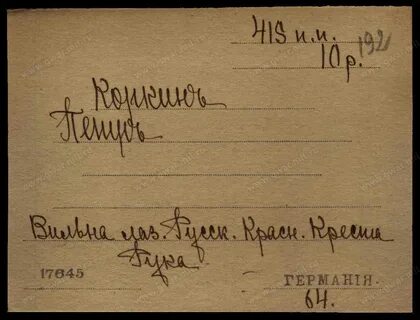 413 п.п.
192
10 р.
Коркинъ
Петръ
Вильна лаз. Русск. Красн. Креста
Рука
17645
ГЕРМАНІЯ.
64.